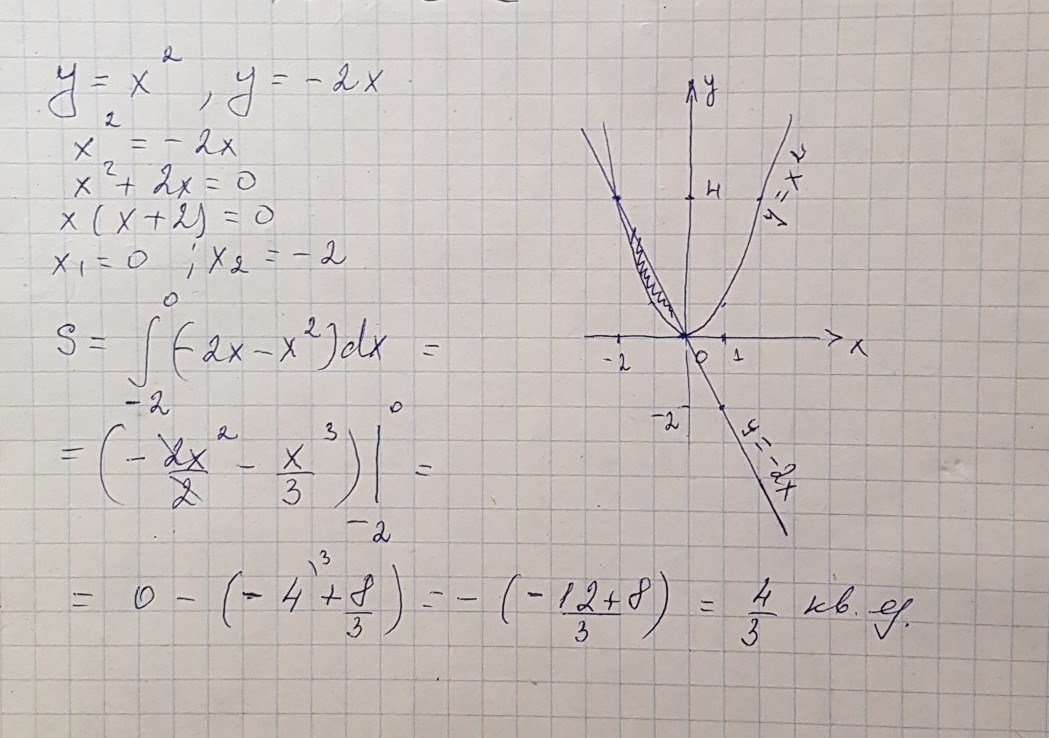 y = x² , y = -2x
x² = -2x
x² + 2x = 0
x(x+2) = 0
x₁ = 0 ; x₂ = -2
S = ∫₋₂⁰ (-2x - x²)dx =
= (- 2x²/2 - x³/3) |₋₂⁰ =
= 0 - (-4^{\3} + 8/3) = -(-12+8/3) = 4/3 кв. ед.
y
4
y = x²
-2 0 1 x
-2
y = -2x